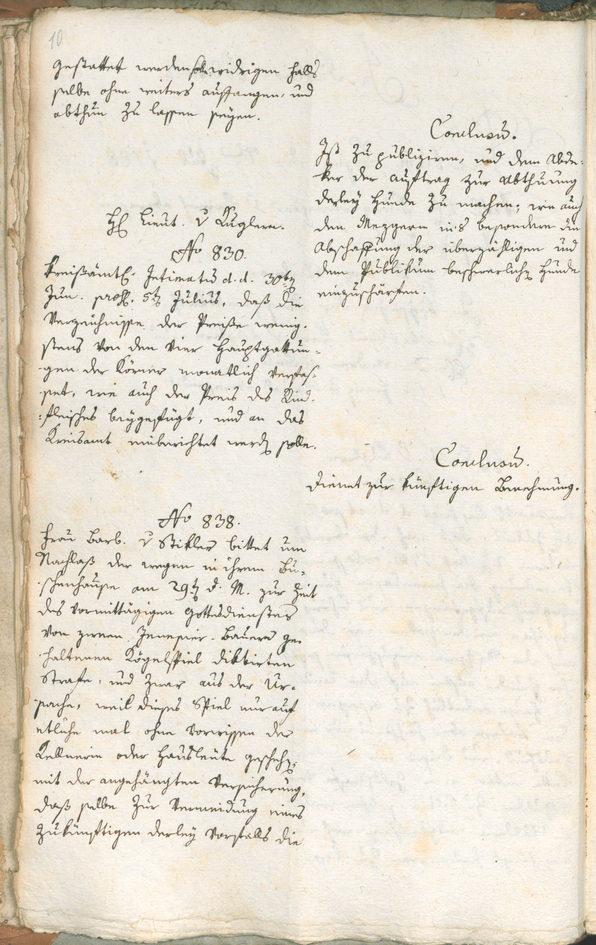 10
gestattet werden widrigen falls
selbe ohne weiters auffangen, und
abthun zu lassen seyen.
Conclusum.
Ist zu publiziren, und dem Abde-
ker der Auftrag zur Abthuung
derley Hunde zu machen, wie auch
den Mezgern in's besondere die
Abschaffung der überzähligen und
dem Publikum beschwerliche Hunde
einzuschärfen.
H Lieut. v Kuglern.
No 830.
Kreißämtl. Intimatum d. d. 30ten
Jun. pros. 5t Julius, daß die
Verzeichnisse der Preiße wenig-
stens von den vier Hauptgattun-
gen der Körner monatlich verfas-
set, wie auch der Preis des Rind-
fleisches beygefügt, und an das
Kreisamt einberichtet werd solle.
Conclusum.
Dienet zur künftigen Benehmung.
No 838.
Frau Barb. v Stikler bittet um
Nachlaß der wegen in ihrem Bu-
schenhause am 29t d. M. zur Zeit
des vormittägigen Gottesdienstes
von zween Jenesier-Bauern ge-
haltenen Kögelspiel diktirten
Strafe, und zwar aus der Ur-
sache, weil dieses Spiel nur auf
etliche mal ohne Vorwissen der
Kellnerin oder Hausleute geschehen,
mit der angehängten Versicherung,
daß selbe zur Vermeidung eines
zukünftigen derley Vorfalls die